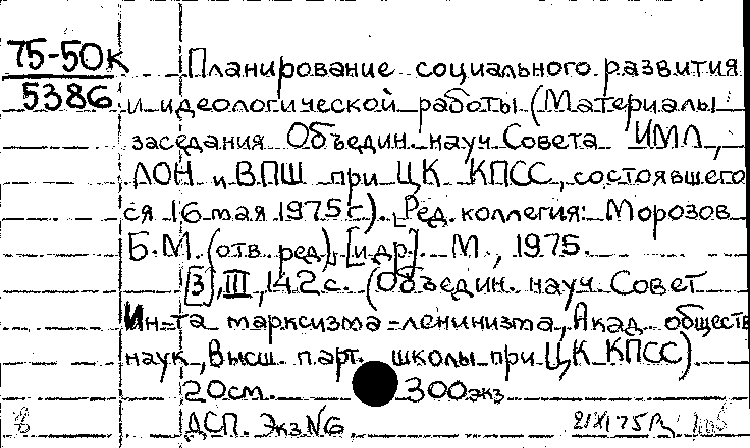 75-50к
5386
Планирование социального развития
и идеологической работы (Материалы
заседания Объедин. науч. Совета ИМЛ,
АОН и ВПШ при ЦК КПСС, состоявшего
ся 16 мая 1975г). Ред. коллегия: Морозов
Б.М. (отв. ред), [и др]. М., 1975.
[3], III, 142с. (Объедин. науч. Совет
Ин-та марксизма-ленинизма, Акад. обществ
наук, Высш. парт. школы при ЦК КПСС).
20см. 300экз
ДСП. Экз N6.
8